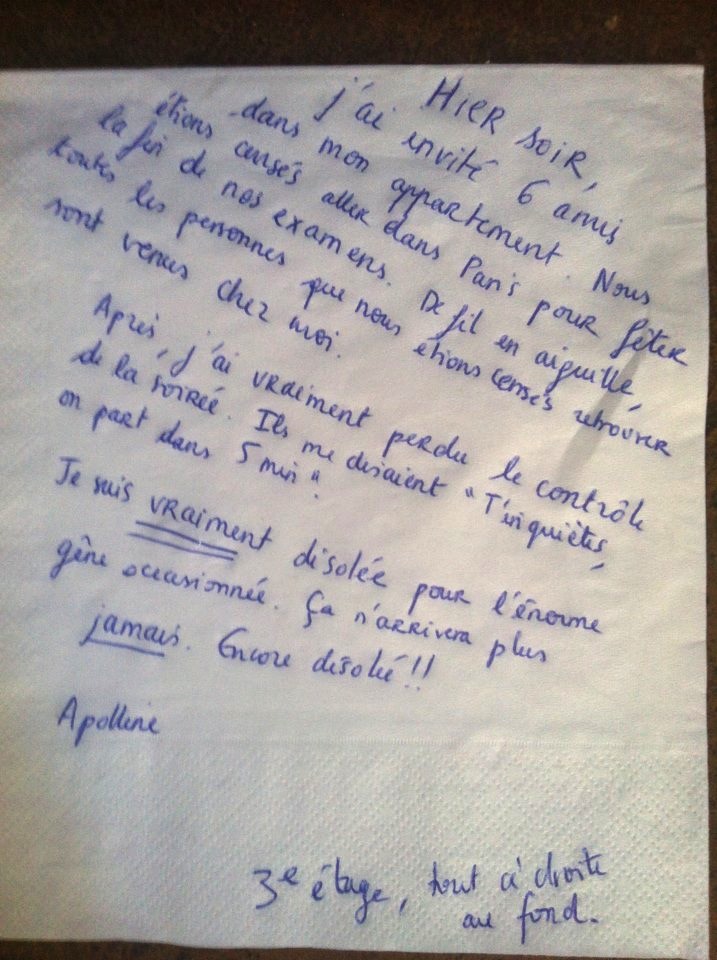 HIER SOIR,
j'ai invité 6 amis
dans mon appartement. Nous
étions censés aller dans Paris pour fêter
la fin de nos examens. De fil en aiguille,
toutes les personnes que nous étions censés retrouver
sont venues chez moi.
Après, j'ai vraiment perdu le contrôle
de la soirée. Ils me disaient "T'inquiètes,
on part dans 5 min".
Je suis vraiment désolée pour l'énorme
gêne occasionnée. Ça n'arrivera plus
jamais. Encore désolé!!
Apolline
3e étage, tout à droite
au fond.